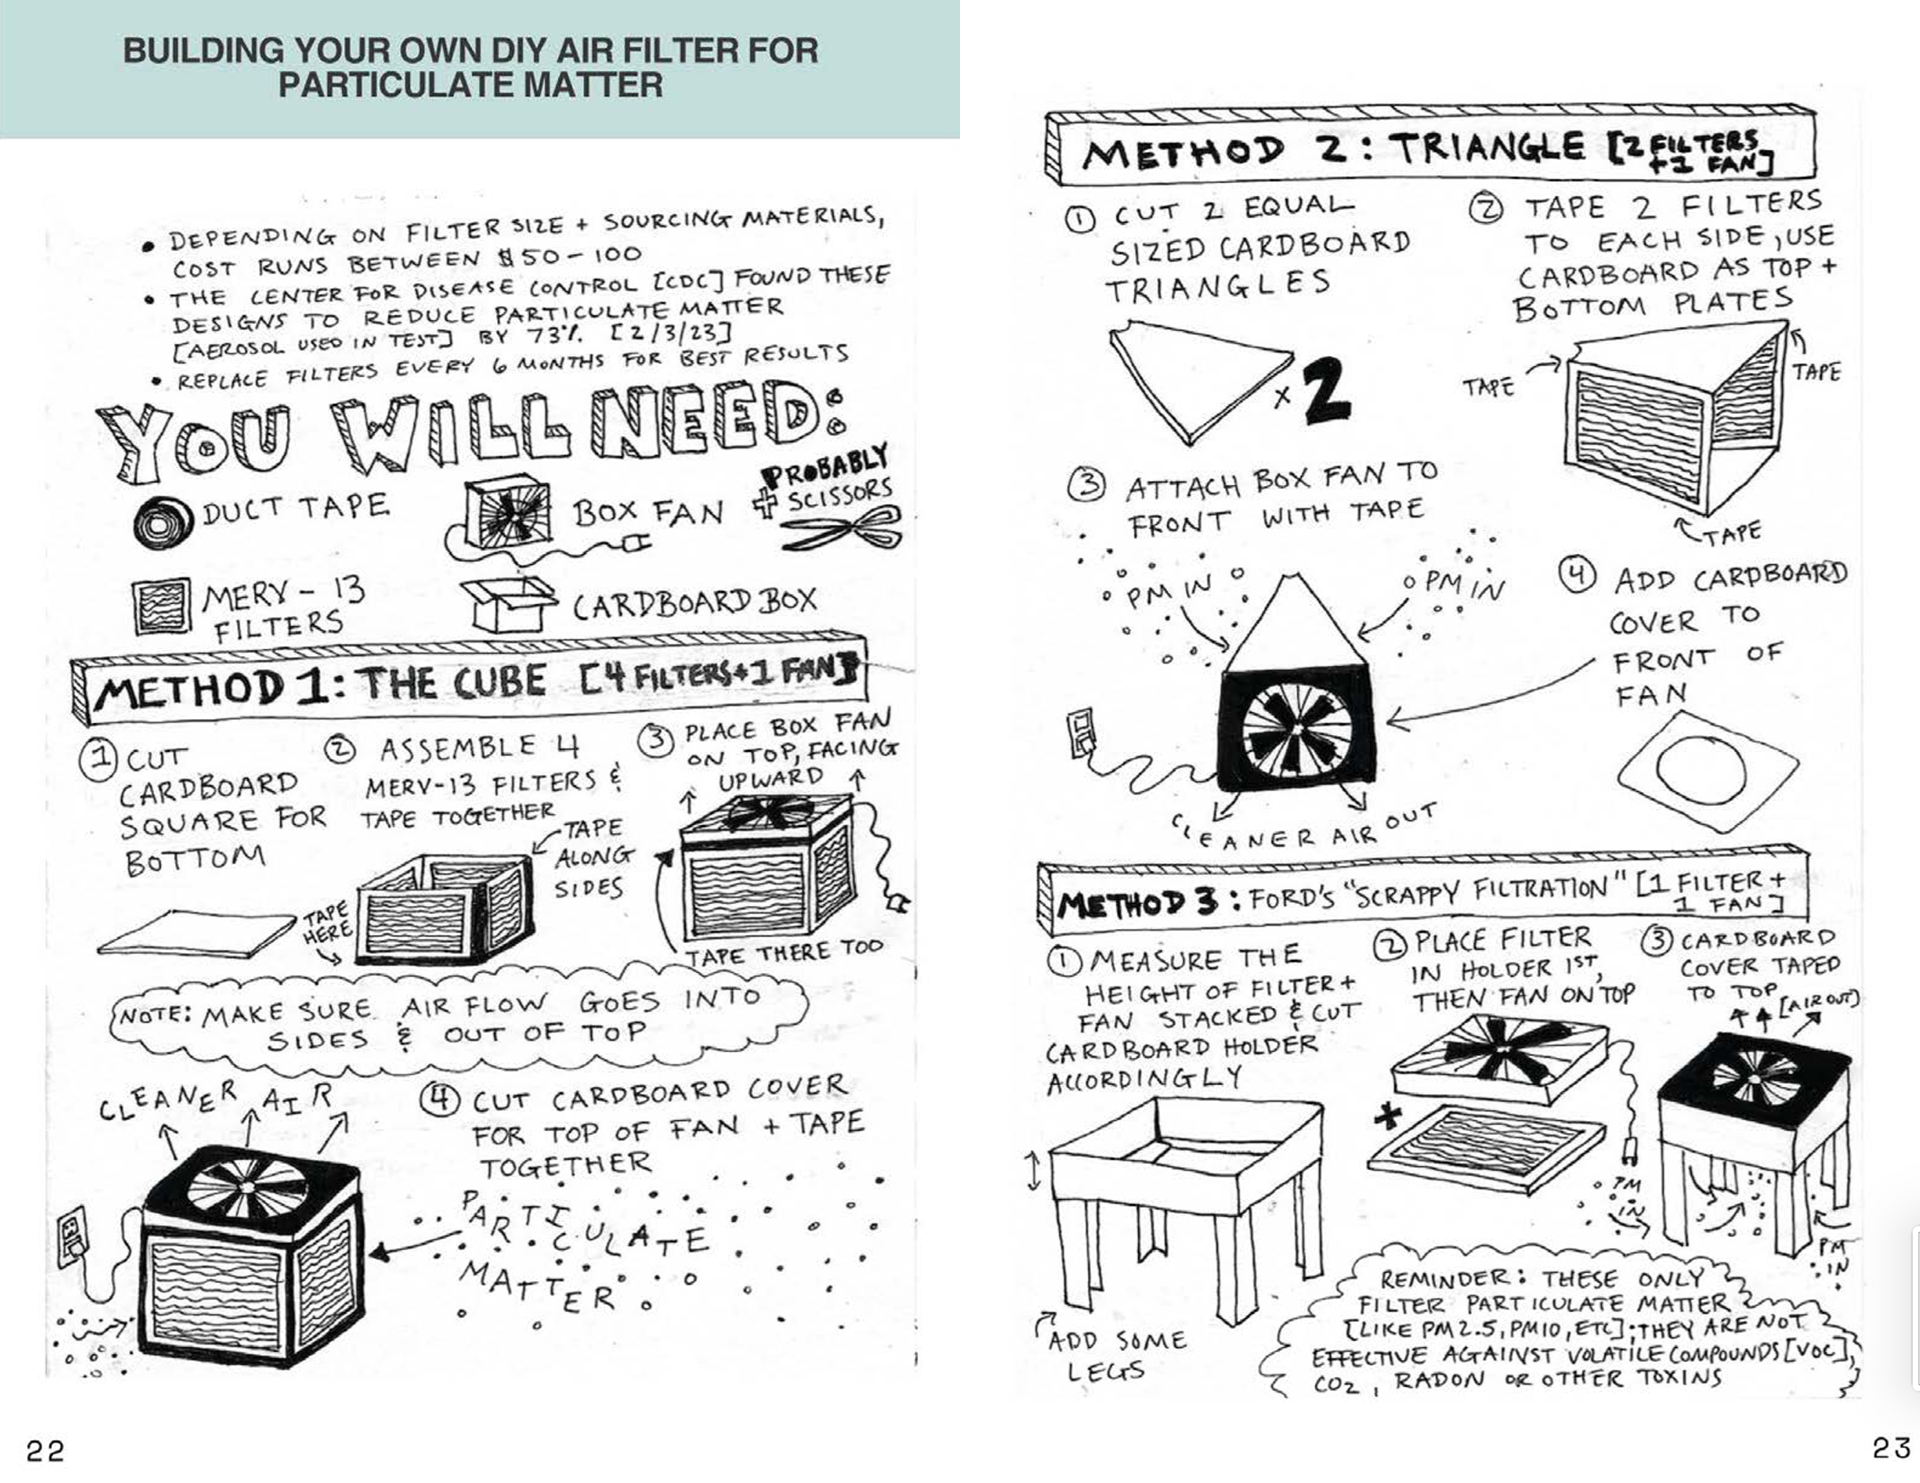 BUILDING YOUR OWN DIY AIR FILTER FOR
PARTICULATE MATTER
• DEPENDING ON FILTER SIZE + SOURCING MATERIALS,
COST RUNS BETWEEN $50-100
• THE CENTER FOR DISEASE CONTROL [CDC] FOUND THESE
DESIGNS TO REDUCE PARTICULATE MATTER
[AEROSOL USED IN TEST] BY 73%. [2/3/23]
• REPLACE FILTERS EVERY 6 MONTHS FOR BEST RESULTS
YOU WILL NEED:
DUCT TAPE
BOX FAN
PROBABLY
+ SCISSORS
MERV-13
FILTERS
CARDBOARD BOX
METHOD 1: THE CUBE [4 FILTERS+1 FAN]
① CUT
CARDBOARD
SQUARE FOR
BOTTOM
② ASSEMBLE 4
MERV-13 FILTERS &
TAPE TOGETHER
TAPE
ALONG
SIDES
TAPE
HERE
③ PLACE BOX FAN
ON TOP, FACING
UPWARD
TAPE THERE TOO
NOTE: MAKE SURE AIR FLOW GOES INTO
SIDES & OUT OF TOP
CLEANER AIR
④ CUT CARDBOARD COVER
FOR TOP OF FAN + TAPE
TOGETHER
PARTICULATE
MATTER
22
METHOD 2: TRIANGLE [2 FILTERS
+1 FAN]
① CUT 2 EQUAL
SIZED CARDBOARD
TRIANGLES
x 2
② TAPE 2 FILTERS
TO EACH SIDE, USE
CARDBOARD AS TOP +
BOTTOM PLATES
TAPE
TAPE
TAPE
③ ATTACH BOX FAN TO
FRONT WITH TAPE
PM IN
PM IN
CLEANER AIR OUT
④ ADD CARDBOARD
COVER TO
FRONT OF
FAN
METHOD 3: FORD'S "SCRAPPY FILTRATION" [1 FILTER +
1 FAN]
① MEASURE THE
HEIGHT OF FILTER +
FAN STACKED & CUT
CARDBOARD HOLDER
ACCORDINGLY
ADD SOME
LEGS
② PLACE FILTER
IN HOLDER 1ST,
THEN FAN ON TOP
*
③ CARDBOARD
COVER TAPED
TO TOP
[AIR OUT]
PM
IN
PM
IN
REMINDER: THESE ONLY
FILTER PARTICULATE MATTER
[LIKE PM2.5, PM10, ETC]; THEY ARE NOT
EFFECTIVE AGAINST VOLATILE COMPOUNDS [VOC],
CO2, RADON OR OTHER TOXINS
23